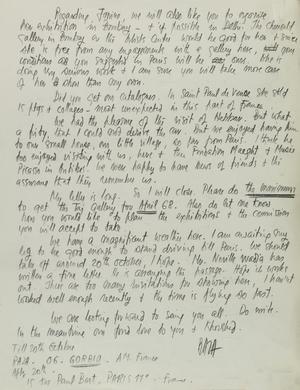 Regarding Janine, we will also like you to organise
her exhibition in Bombay - & if possible in Delhi. The Chemould
Gallery in Bombay or the White Center would be good for her & since
she is free from any engagements with a gallery here,
conditions as you suggested in Paris will be ones. She is
doing very serious work & I am sure you will take more care
of her than any one.
Did you get our catalogues. In Saint Paul de Vence she sold
15 ptgs & collages - most unexpected in this part of France.
We had the pleasure of the visit of Hebbar. But what
a pity, that I could not drive the car. But we enjoyed having him
to our small house, our little village, so far from Paris, I think he
too enjoyed visiting with us, here & the Fondation Maeght & Musée
Picasso in Antibes. We were happy to have news of friends & the
assurance that they remember us.
My letter is long. So I will close. Please do the maximum
to get the TM Gallery for April 68. Also do let me know
how you would like to plan the exhibitions & the commission
you will accept to take.
We have a magnificent weather here. I am awaiting my
leg to be good enough to stand driving till Paris. We should
take off around 20th October, I hope. Mr. Neville Wadia has
written a fine letter. He is arranging the passage. Hope it works
out. There are too many invitations for showing here, I haven't
worked well enough recently & the time is flying so fast.
We are looking forward to seeing you all. Do write.
In the meantime our fond love to you & Khorshed.
RAZA
Till 20th October
RAZA - 06. GORBIO - A.M. France
After 20th -
15 rue Paul Bert, PARIS 11° - France.